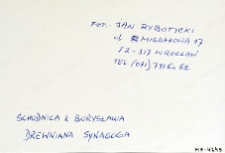 FOT: JAN RYBOTYCKI
ul. MIGDAŁOWA 17
52-317 WROCŁAW
TEL (071)
SCHODNICA k BORYSŁAWIA
DREWNIANA SYNAGOGA